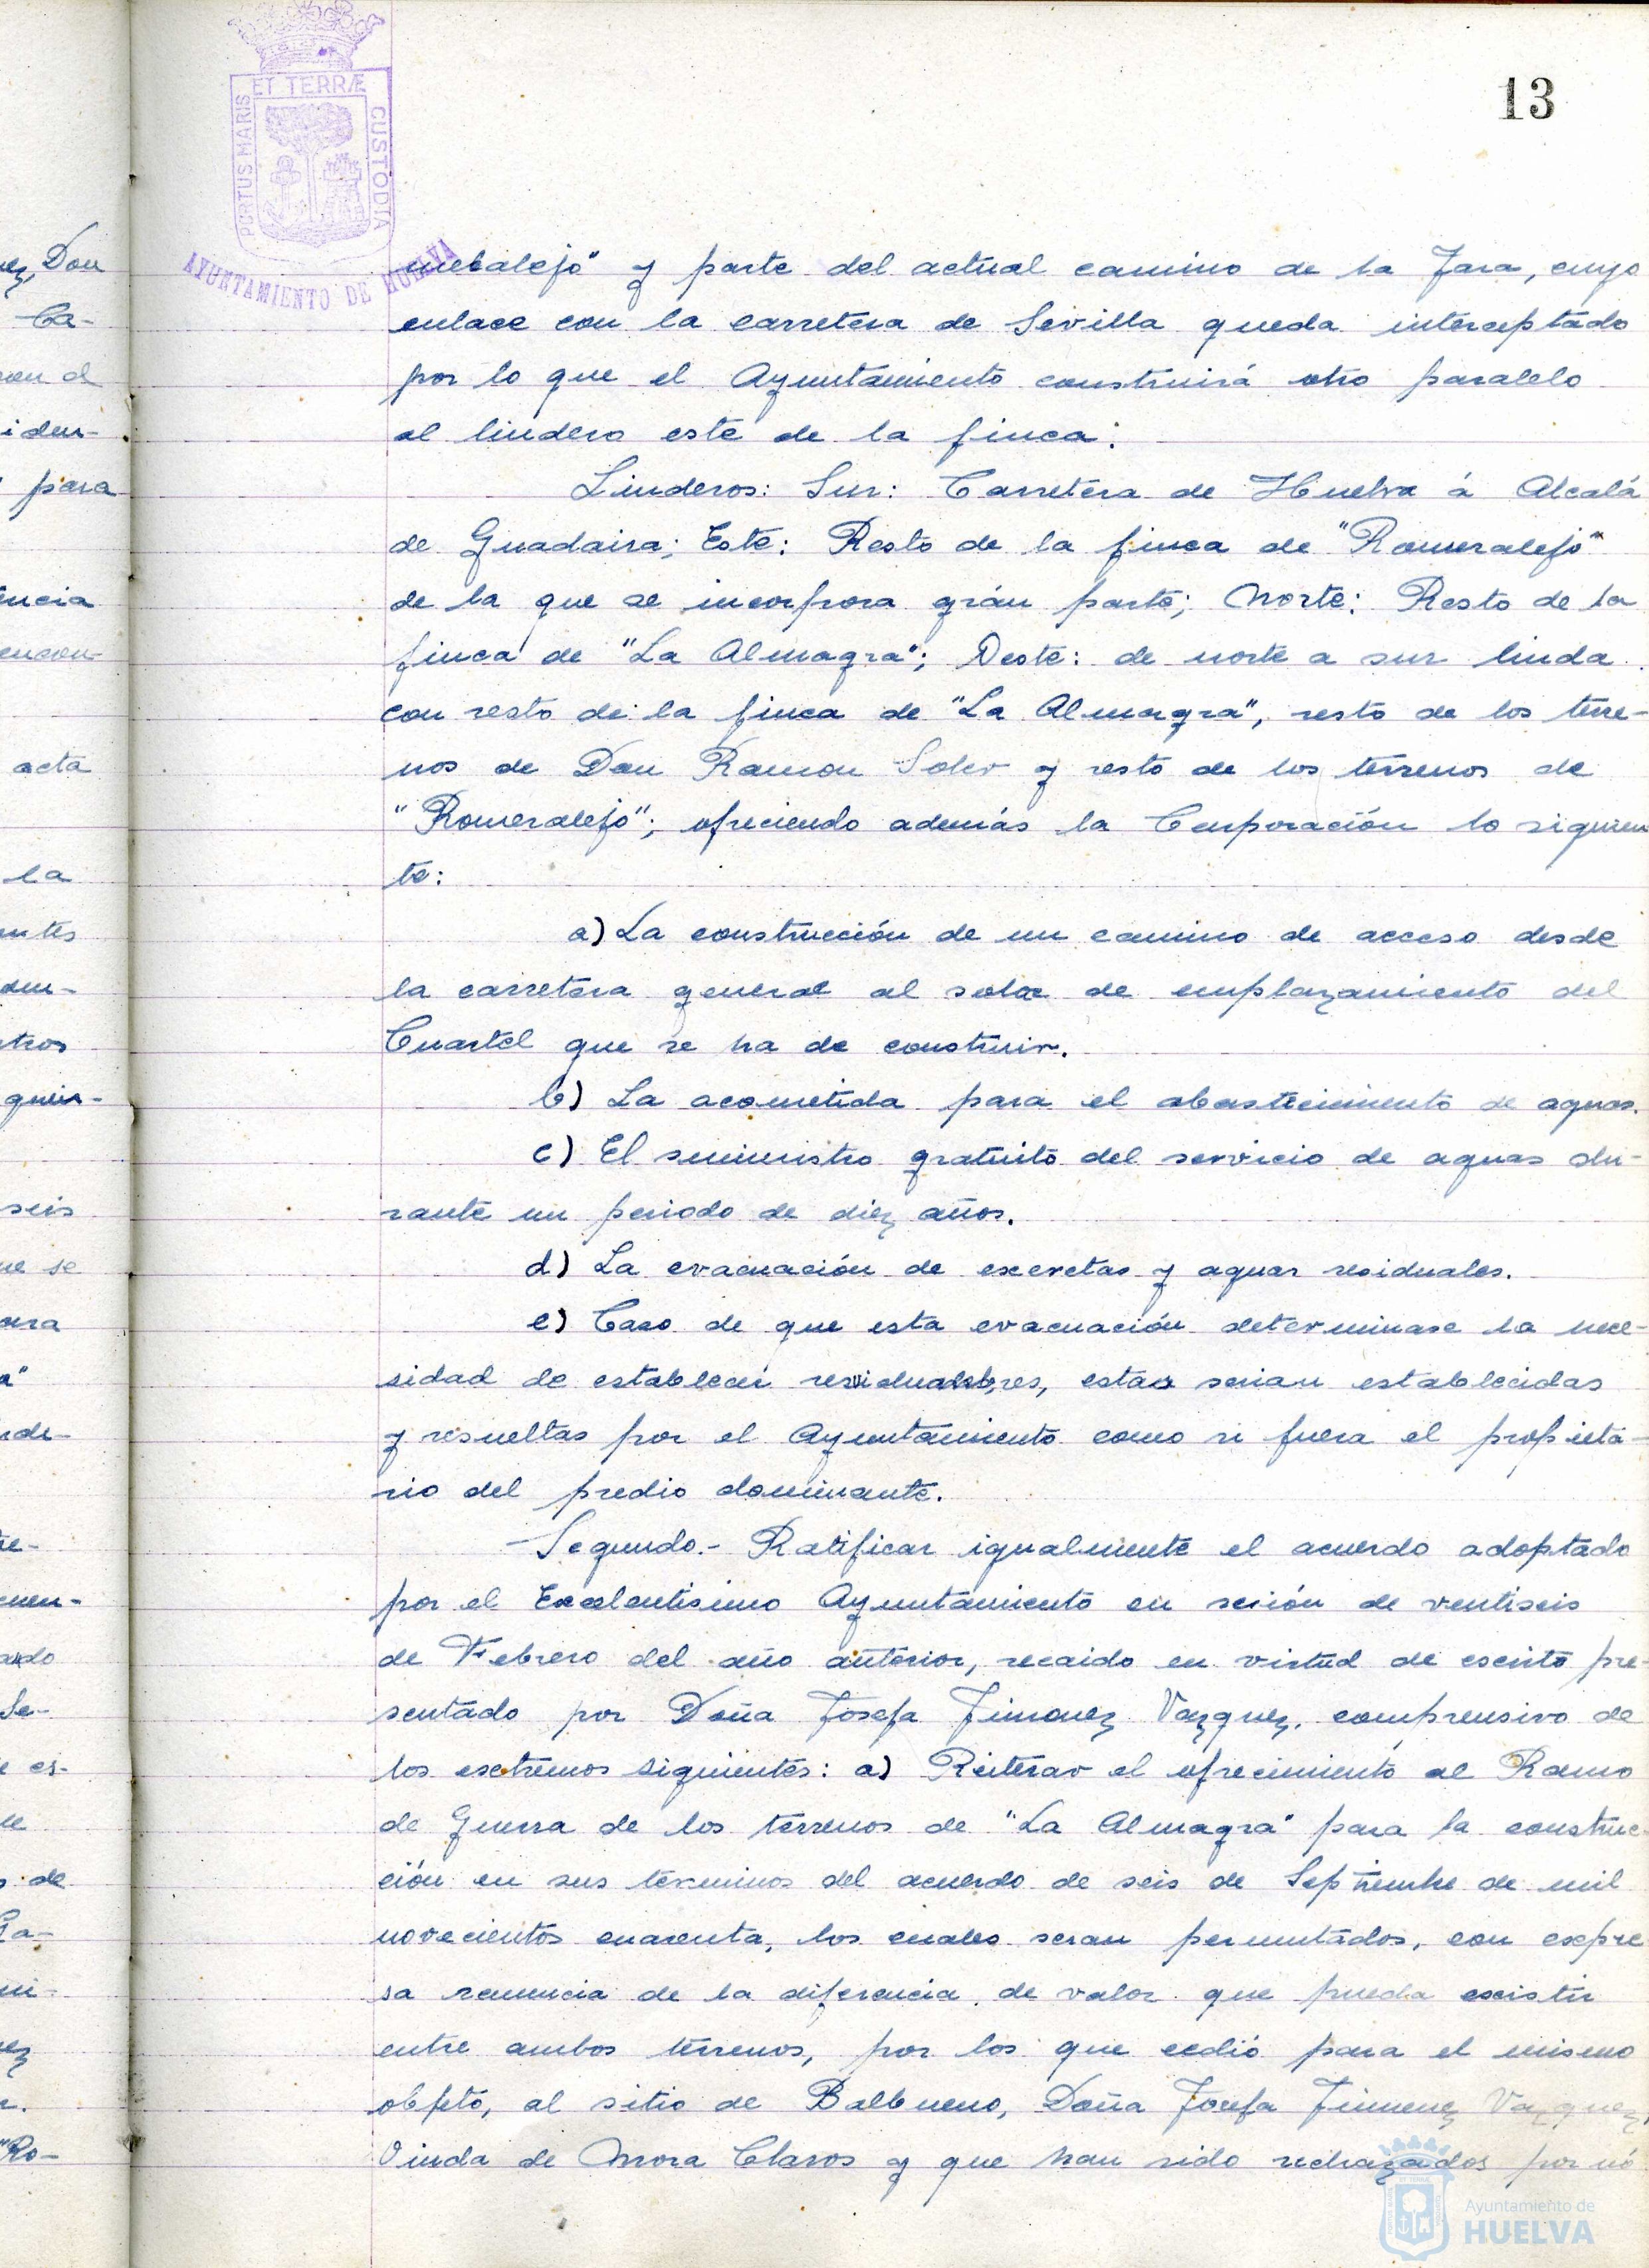 13
PORTUS MARIS ET TERRÆ CUSTODIA
AYUNTAMIENTO DE HUELVA
ez, Don
Ca-
con el
iden-
para
encia
encon-
acta
la
antes
den-
tros
guien-
seis
ue se
ara
a"
nde-
de-
cuen-
ado
Se-
e es-
s de
ni-
ez
"Ro-
meralejo" y parte del actual camino de la Jara, cuyo
enlace con la carretera de Sevilla queda interceptado
por lo que el Ayuntamiento construirá otro paralelo
al lindero este de la finca:
Linderos: Sur: Carretera de Huelva á Alcalá
de Guadaira; Este: Resto de la finca de "Romeralejo"
de la que se incorpora grán parte; Norte: Resto de la
finca de "La Almagra"; Oeste: de norte a sur linda
con resto de la finca de "La Almagra", resto de los terre-
nos de Don Ramon Soler y resto de los terrenos de
"Romeralejo"; ofreciendo además la Corporación lo siguien
te:
a) La construcción de un camino de acceso desde
la carretera general al solar de emplazamiento del
Cuartel que se ha de construir.
b) La acometida para el abastecimiento de aguas.
c) El suministro gratuito del servicio de aguas du-
rante un periodo de diez años.
d) La evacuación de excretas y aguas residuales.
e) Caso de que esta evacuación determinase la nece-
sidad de establecer estas serian establecidas
y resueltas por el Ayuntamiento como si fuera el propieta-
rio del predio dominante.
Segundo.- Ratificar igualmente el acuerdo adoptado
por el Excelentisimo Ayuntamiento en sesión de ventiseis
de Febrero del año anterior, recaido en virtud de escrito pre-
sentado por Doña Josefa Jimenez Vazquez, comprensivo de
los extremos siguientes: a) Reiterar el ofrecimiento al Ramo
de Guerra de los terrenos de "La Almagra" para la construc-
ción en sus terminos del acuerdo de seis de Septiembre de mil
novecientos cuarenta, los cuales seran permutados, con expre
sa renuncia de la diferencia de valor que pueda existir
entre ambos terrenos, por los que cedió para el mismo
objeto, al sitio de Balbueno, Doña Josefa Jimenez Vazquez,
Viuda de Mora Claros y que han sido rechazados por nó
Ayuntamiento de
HUELVA